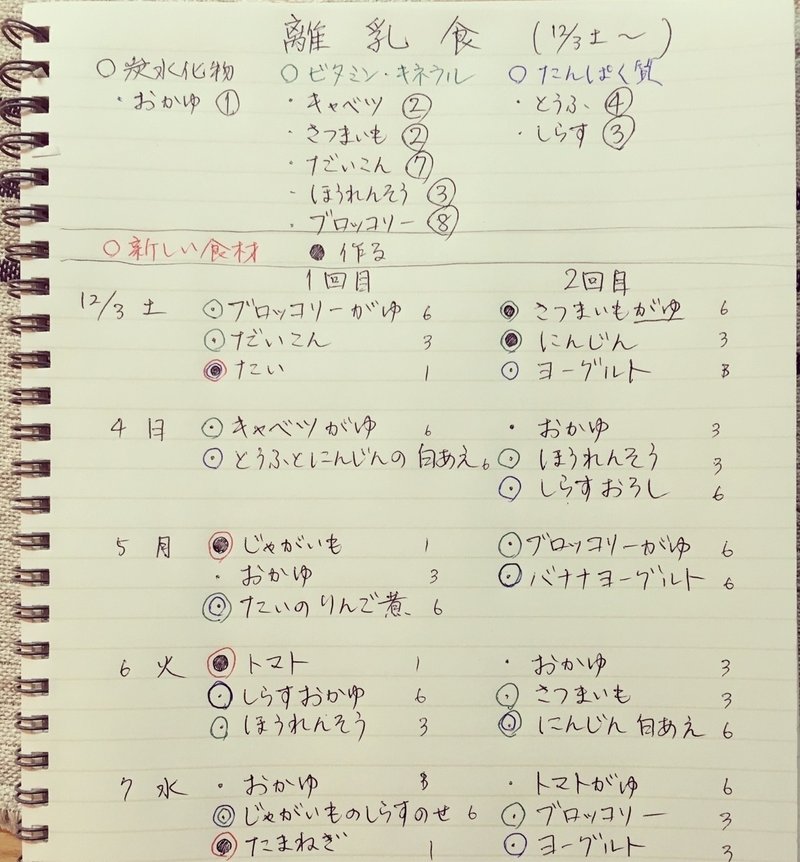 離乳食 (12/3土〜)
○炭水化物 ○ビタミン・キネラル ○たんぱく質
・おかゆ① ・キャベツ② ・とうふ④
・さつまいも② ・しらす③
・だいこん⑦
・ほうれんそう③
・ブロッコリー⑧
○新しい食材 ●作る
1回目 2回目
12/3 土 ブロッコリーがゆ 6 さつまいもがゆ 6
だいこん 3 にんじん 3
たい 1 ヨーグルト 3
4 日 キャベツがゆ 6 ・おかゆ 3
とうふとにんじんの白あえ 6 ほうれんそう 3
しらすおろし 6
5 月 じゃがいも 1 ブロッコリーがゆ 6
・おかゆ 3 バナナヨーグルト 6
たいのりんご煮 6
6 火 トマト 1 ・おかゆ 3
しらすおかゆ 6 さつまいも 3
ほうれんそう 3 にんじん白あえ 6
7 水 ・おかゆ 3 ・トマトがゆ 6
じゃがいものしらすのせ 6 ブロッコリー 3
たまねぎ 1 ヨーグルト 3